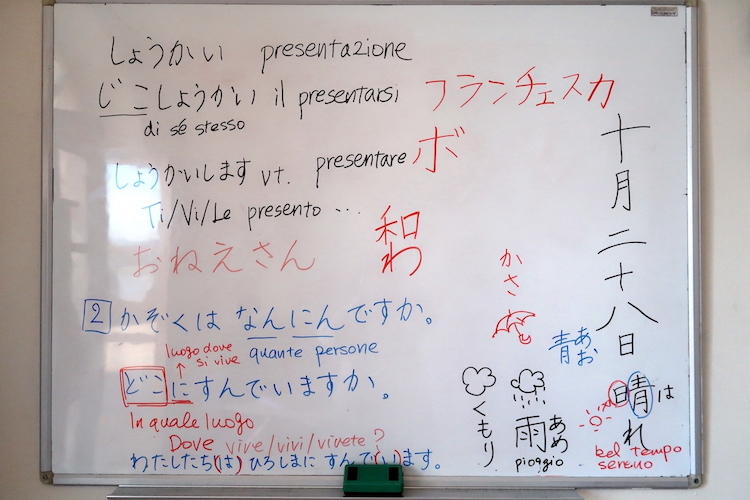 しょうかい presentazione
じこしょうかい il presentarsi
di sé stesso
フランチェスカ
ボ
しょうかいします vt. presentare
Ti/Vi/Le presento ...
和
わ
おねえさん
十月二十八日
かさ
2 かぞくは なんにんですか。
luogo dove si vive
quante persone
どこにすんでいますか。
In quale luogo
Dove vive/vivi/vivete?
わたしたち(は)ひろしまに すんで(い)ます。
青 あお
くもり
雨 あめ
pioggio
晴れ は
bel tempo
sereno